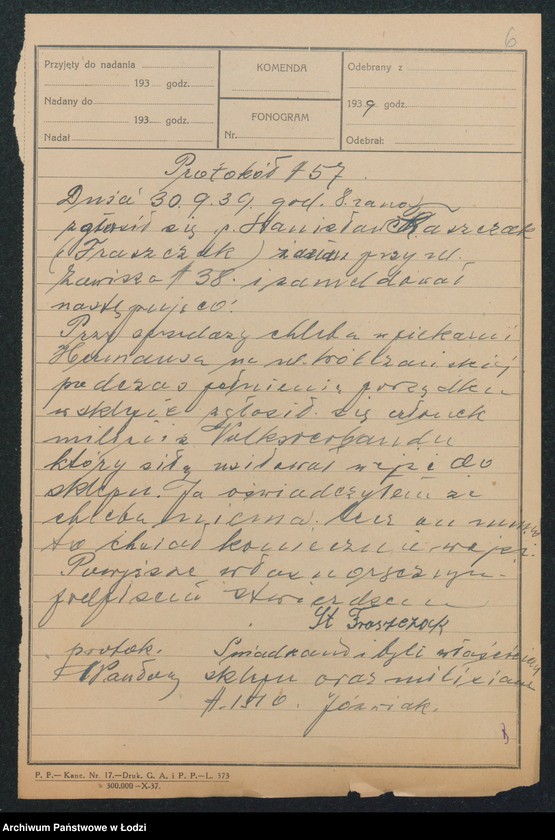 6
Przyjęty do nadania
193 godz.
Nadany do
193 godz.
Nadał
KOMENDA
FONOGRAM
Nr.
Odebrany z
1939 godz.
Odebrał:
Protokół № 57
Dnia 30.9.39. god. 8. rano
zgłosił się p. Stanisław Fraszczak
(Fraszczak) przy ul.
Zawisza № 38. i zameldował
następująco:
Przy sprzedaży chleba w piekarni
Hermansa na ul. Wólczańskiej
podczas pełnienia porządku
w sklepie zgłosił się członek
milicji z Volksverbandu
który siłą usiłował wejść do
sklepu. Ja oświadczyłem że
chleba niema. lecz on mimo
to chciał koniecznie wejść.
Powyższe własnoręcznym
podpisem stwierdzam
St Fraszczak
protok.
Świadkami byli właściciel
sklepu oraz milicjant
№ 1516. Jóźwiak.
P. P.— Kanc. Nr. 17.—Druk. G. A. i P. P.—L. 373
300.000 -X-37.
Archiwum Państwowe w Łodzi